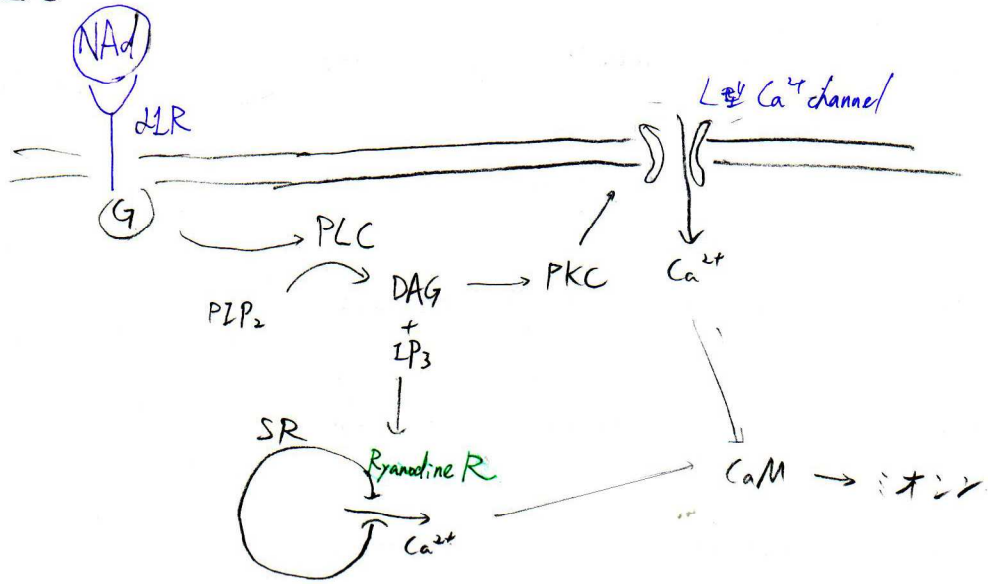 NAd
α1R
L型 Ca²⁺ channel
G
PLC
PIP₂
DAG
+
IP₃
PKC
Ca²⁺
SR
Ryanodine R
Ca²⁺
CaM
ミオシン